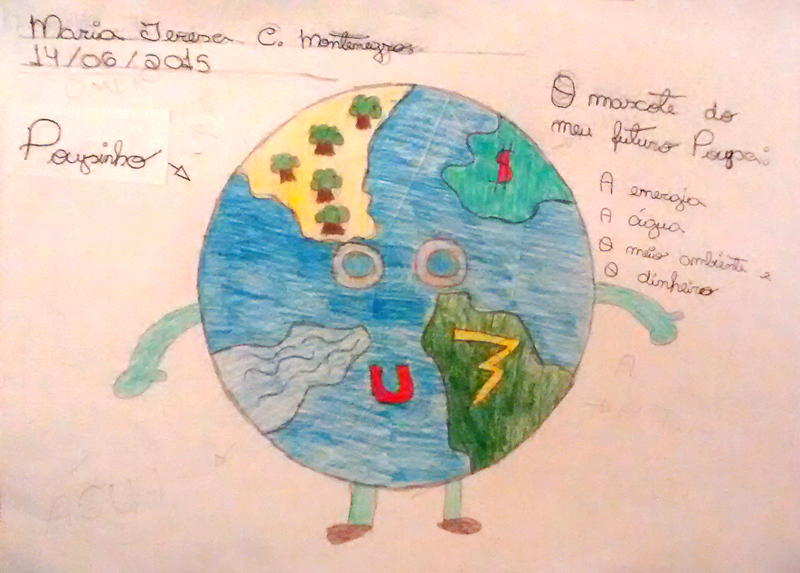 Maria Teresa C. Montenegro
14/06/2015
Poupinho
O mascote do
meu futuro
A energia
A água
O meio ambiente e
O dinheiro
$